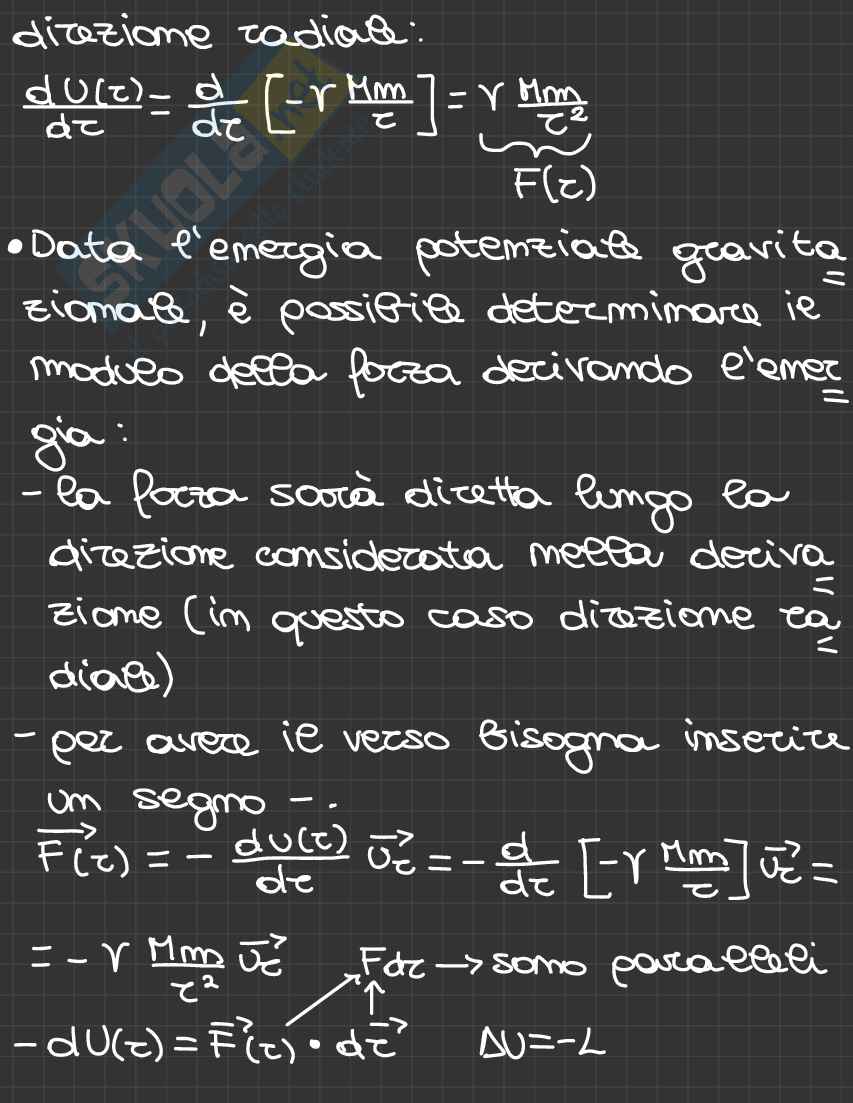 direzione radiale:
dU(r)/dr = d/dr [-γ Mm/r] = γ Mm/r²
F(r)
• Data l'energia potenziale gravita=
zionale, è possibile determinare il
modulo della forza derivando l'ener=
gia:
- la forza sarà diretta lungo la
direzione considerata nella deriva=
zione (in questo caso direzione ra=
diale)
- per avere il verso bisogna inserire
un segno -.
F⃗(r) = - dU(r)/dr u⃗r = - d/dr [-γ Mm/r] u⃗r =
= - γ Mm/r² u⃗r Fdr → sono paralleli
- dU(r) = F⃗(r) • dr⃗ ΔU = -L
SKUOLA.net